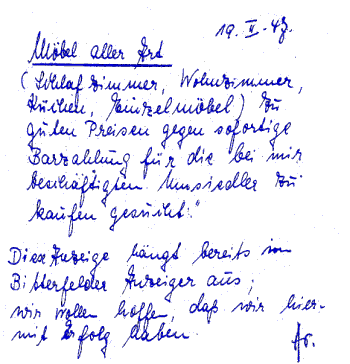 19. II. 43.
Möbel aller Art
(Schlafzimmer, Wohnzimmer,
Küchen, Einzelmöbel) zu
guten Preisen gegen sofortige
Barzahlung für die bei mir
beschäftigten Umsiedler zu
kaufen gesucht."
Diese Anzeige hängt bereits im
Bitterfelder Anzeiger aus;
wir wollen hoffen, daß wir hier-
mit Erfolg haben.